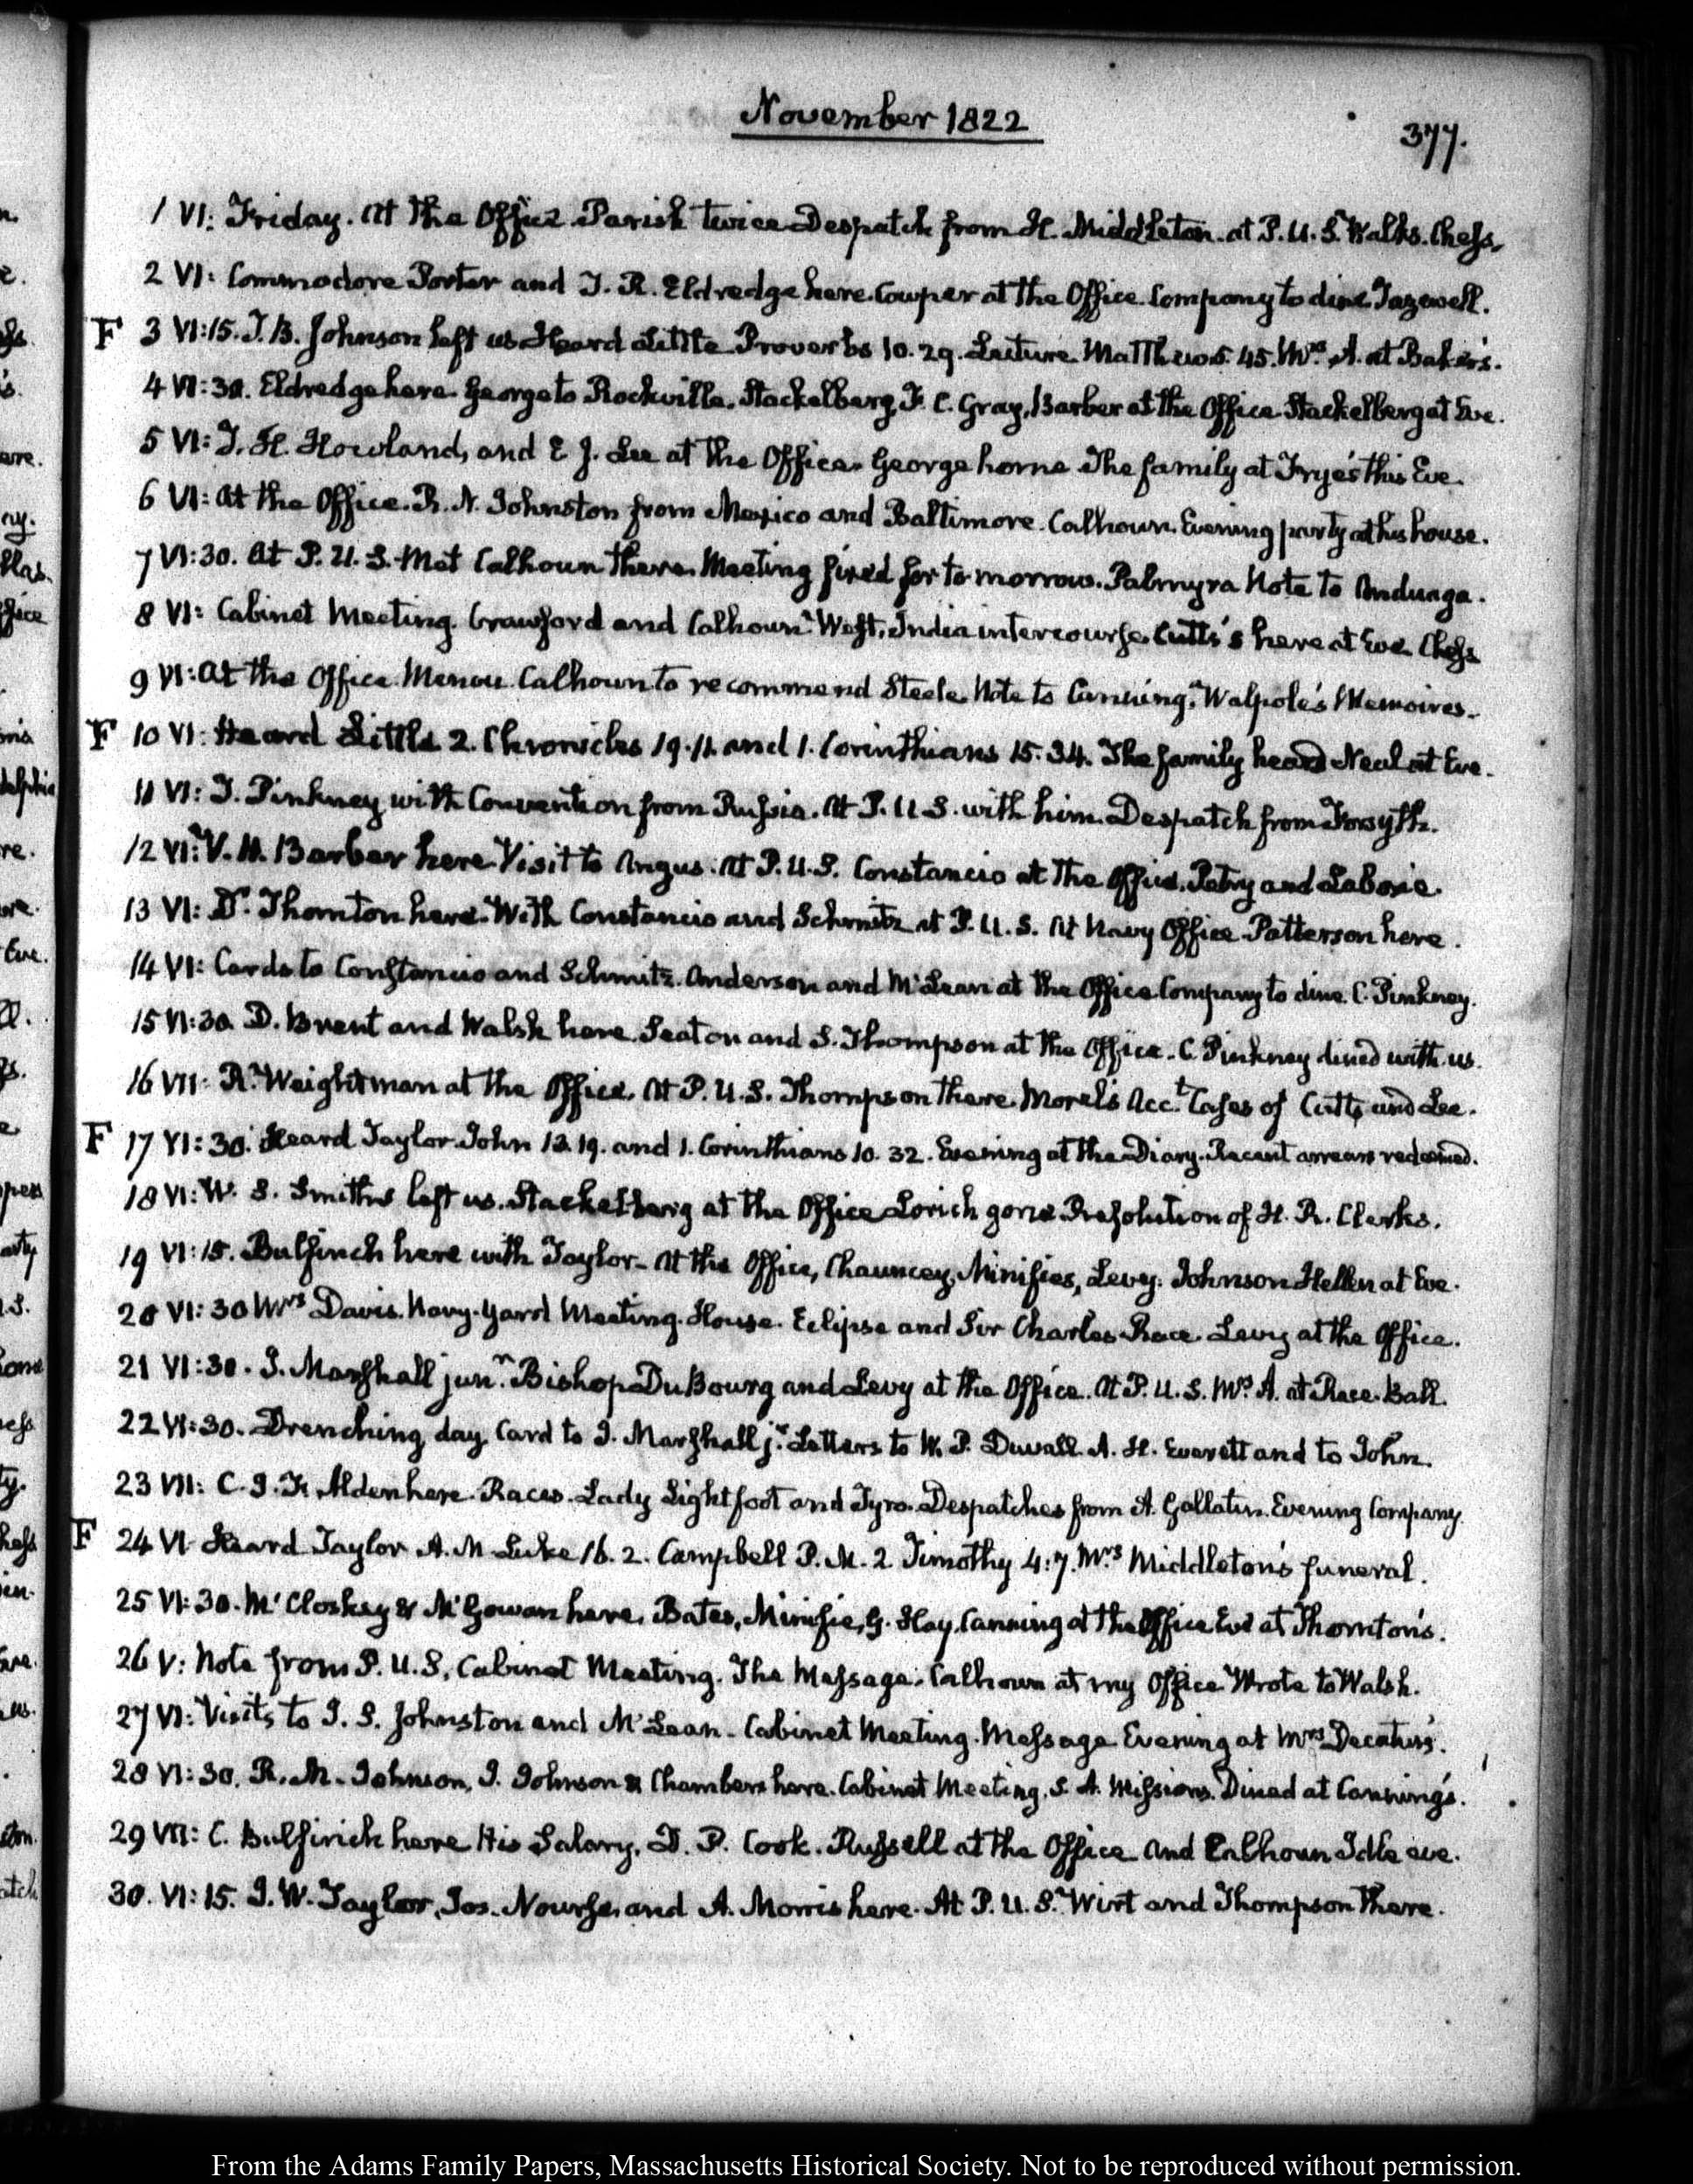 November 1822
377.
1 VI: Friday. At the Office. Parish twice Despatch from H. Middleton. at P. U. S. Walks. Chess.
2 VI: Commodore Porter and J. R. Eldredge here. Cowper at the Office. Company to dine Tazewell.
F 3 VI:15. T. B. Johnson left us Heard Little Proverbs 10. 29. Lecture Matthew 5. 45. Mrs. A. at Baker's.
4 VI:30. Eldredge here. George to Rockville. Stackelberg, F. C. Gray, Barber at the Office. Stackelberg at Eve.
5 VI: J. H. Howland, and E J. Lee at the Office. George home. The family at Frye's this Eve.
6 VI: At the Office. R. N. Johnston from Mexico and Baltimore. Calhoun. Evening party at his house.
7 VI:30. At P. U. S. Met Calhoun there. Meeting fixed for to morrow. Palmyra Note to Anduaga.
8 VI: Cabinet Meeting. Crawford and Calhoun. West, India intercourse. Cutts's here at Eve. Chess
9 VI: At the Office. Menou. Calhoun to recommend Steele. Note to Canning. Walpole's Memoires.
F 10 VI: Heard Little 2. Chronicles 19. 11. and 1. Corinthians 15. 34. The family heard Neal at Eve.
11 VI: J. Pinkney with Convention from Russia. At P. U S. with him. Despatch from Forsyth.
12 VI: V. H. Barber here. Visit to Angus. At P. U. S. Constancio at the Office. Petry and Laborie.
13 VI: Dr. Thornton here. With Constancio and Schmitz at P. U. S. At Navy Office Patterson here.
14 VI: Cards to Constancio and Schmitz. Anderson and McLean at the Office. Company to dine. C. Pinkney.
15 VI:30. D. Brent and Walsh here. Seaton and S. Thompson at the Office. C. Pinkney dined with us.
16 VII: R. Weightman at the Office. At P. U. S. Thompson there. Morel's Acct. Cases of Cutts and Lee.
F 17 VI:30. Heard Taylor John 13. 19. and 1. Corinthians 10. 32. Evening at the Diary. Recent arrears redeemed.
18 VI: W. S. Smiths left us. Stackelberg at the Office Lorich gone. Resolution of H. R. Clerks.
19 VI:15. Bulfinch here with Taylor. At the Office, Chauncey, Minifies, Levy. Johnson Hellen at Eve.
20 VI:30 Mrs Davis. Navy-Yard Meeting-House. Eclipse and Sir Charles Race. Levy at the Office.
21 VI:30. J. Marshall junr. Bishop DuBourg and Levy at the Office. At P. U. S. Mrs. A. at Race Ball.
22 VI:30. Drenching day. Card to J. Marshall jr. Letters to W. P. Duvall. A. H. Everett and to John.
23 VII: C. J. F. Alden here. Races. Lady Lightfoot and Tyro. Despatches from A. Gallatin. Evening Company.
F 24 VI Heard Taylor A. M Luke 16. 2. Campbell P. M. 2 Timothy 4:7. Mrs Middleton's funeral.
25 VI:30. McCloskey & McGowan here. Bates, Minifie, G. Hay, Canning at the Office Eve at Thornton's.
26 V: Note from P. U. S, Cabinet Meeting. The Message. Calhoun at my Office. Wrote to Walsh.
27 VI: Visits to J. S. Johnston and McLean. Cabinet Meeting. Message Evening at Mrs Decatur's.
28 VI:30. R. M. Johnson, J. Johnson & Chambers here. Cabinet Meeting. S. A. Missions. Dined at Canning's.
29 VII: C. Bulfinch here His Salary. D. P. Cook. Russell at the Office and Calhoun Idle eve.
30. VI:15. J. W. Taylor, Jos. Nourse and A. Morris here. At P. U. S. Wirt and Thompson there.
From the Adams Family Papers, Massachusetts Historical Society. Not to be reproduced without permission.